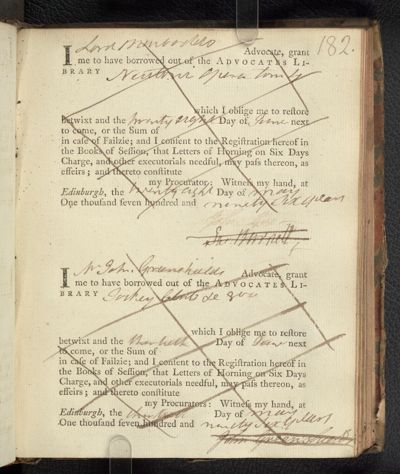 182.
I Lord Monboddo Advocate, grant
me to have borrowed out of the ADVOCATES LI-
BRARY Newtons opera tom
which I oblige me to restore
betwixt and the twenty eight Day of June next
to come, or the Sum of
in case of Failzie; and I consent to the Registration hereof in
the Books of Session, that Letters of Horning on Six Days
Charge, and other executorials needful, may pass thereon, as
effeirs; and thereto constitute
my Procurator: Witness my hand, at
Edinburgh, the twenty eight Day of May
One thousand seven hundred and ninety six years
Jas. Burnett
I Mr John Greenshields Advocate, grant
me to have borrowed out of the ADVOCATES LI-
BRARY
which I oblige me to restore
betwixt and the thirtieth Day of June next
to come, or the Sum of
in case of Failzie; and I consent to the Registration hereof in
the Books of Session, that Letters of Horning on Six Days
Charge, and other executorials needful, may pass thereon, as
effeirs; and thereto constitute
my Procurators: Witness my hand, at
Edinburgh, the thirtieth Day of May
One thousand seven hundred and ninety six years
John Greenshields